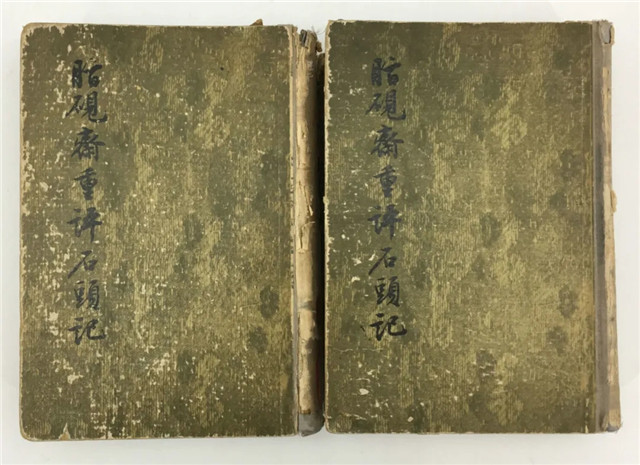 脂硯齋重評石頭記
脂硯齋重評石頭記